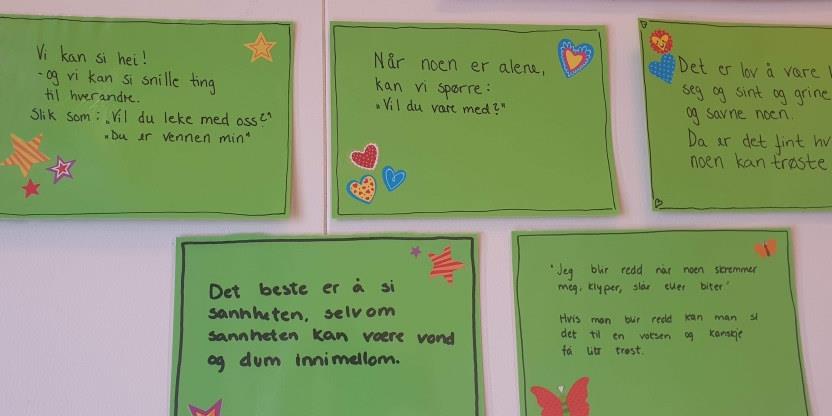 Vi kan si hei!
- og vi kan si snille ting
til hverandre.
Slik som: „Vil du leke med oss?"
"Du er vennen min"
Når noen er alene,
kan vi spørre:
"Vil du være med?"
Det er lov å være
seg og sint og grine
og savne noen.
Da er det fint
noen kan trøste
Det beste er å si
sannheten, selv om
sannheten kan være vond
og dum innimellom.
"Jeg blir redd når noen skremmer
meg, klyper, slår eller biter"
Hvis man blir redd kan man si
det til en voksen og kanskje
få litt trøst.